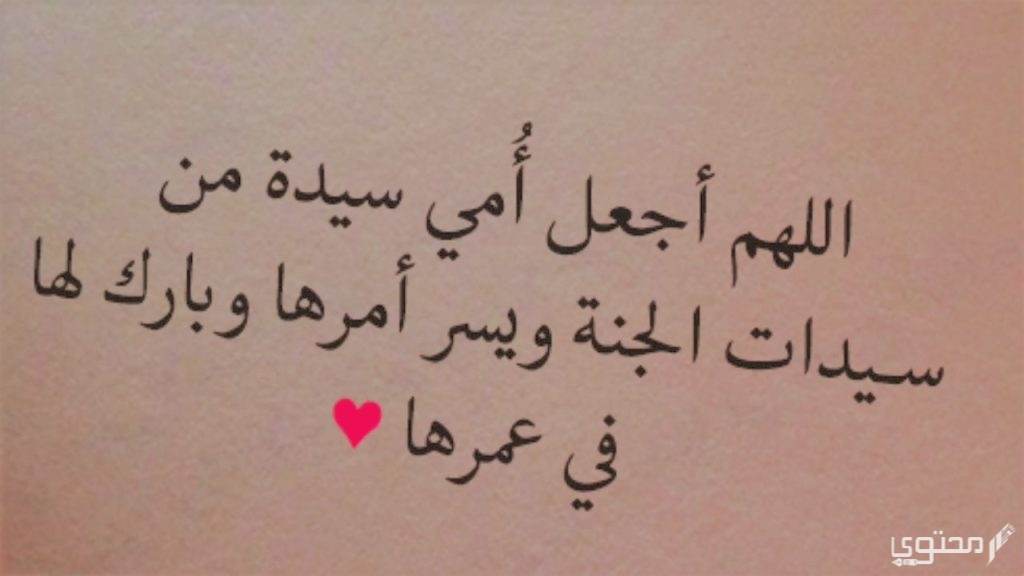 اللهم أجعل أُمي سيدة من
سيدات الجنة ويسر أمرها وبارك لها
في عمرها ♥
محتوى